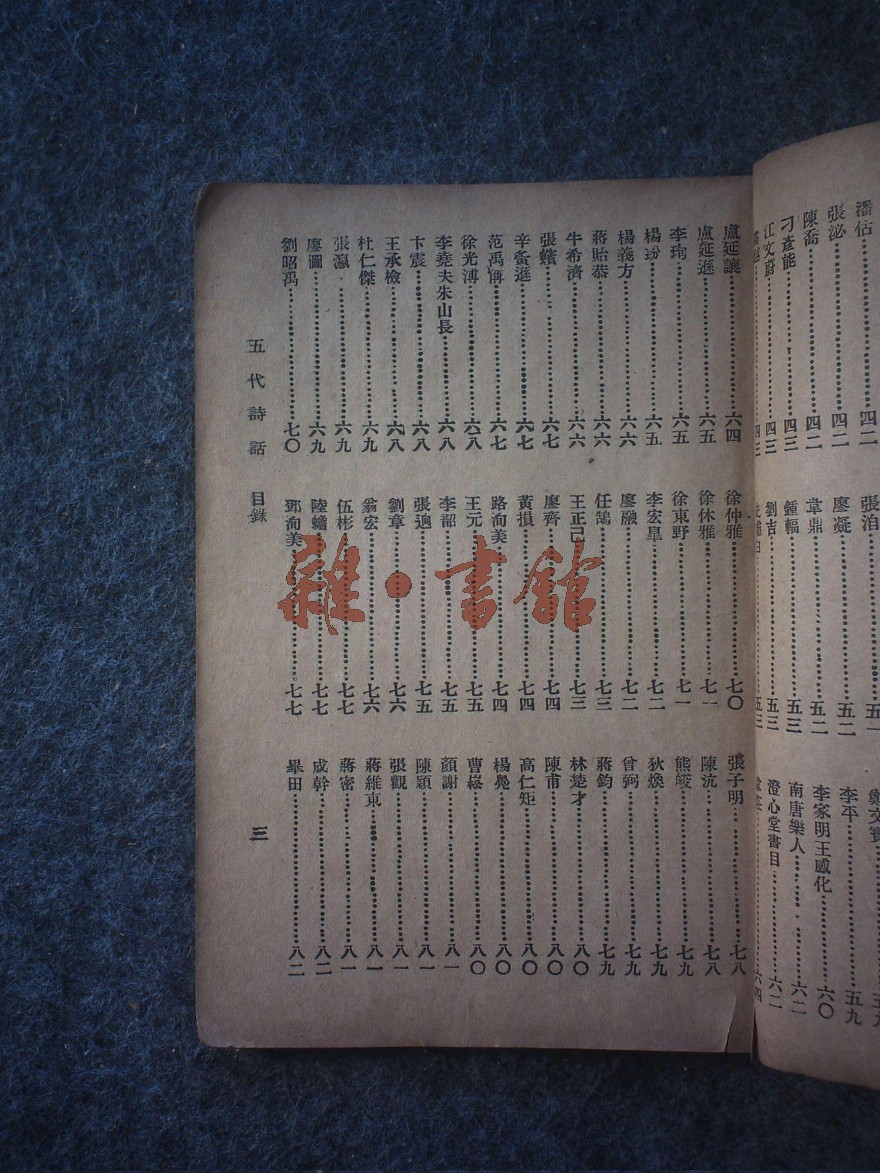 潘佑……四二
張泌……四二
陳喬……四二
刁彥能……四三
江文蔚……四三
張洎……五一
廖凝……五二
韋鼎……五二
鍾輻……五三
劉吉……五三
李平……五九
李家明王感化……六〇
南唐樂人……六二
澄心堂書目……六二
盧延讓……六四
盧延遜……六五
李珣……六五
楊玢……六五
楊義方……六六
蔣貽恭……六六
牛希濟……六六
張蠙……六七
辛夤遜……六七
范禹偁……六七
徐光溥……六八
李堯夫朱山長……六八
卞震……六八
王承檢……六八
杜仁傑……六九
張瀛……六九
廖圖……六九
劉昭禹……七〇
徐仲雅……七〇
徐休雅……七一
徐東野……七一
李宏臯……七二
廖融……七二
任鵠……七三
王正己……七三
廖齊……七四
黃損……七四
路洵美……七四
王元……七五
李韶……七五
張逈……七五
劉章……七六
翁宏……七六
伍彬……七七
陸蟾……七七
鄧洵美……七七
張子明……七八
陳沆……七八
熊皦……七九
狄煥……七九
曾弼……七九
蔣鈞……七九
林楚才……八〇
陳甫……八〇
高仁矩……八〇
楊彝……八〇
曹崧……八〇
顏謝……八一
陳穎……八一
張觀……八一
蔣維東……八一
蔣密……八一
成幹……八二
畢田……八二
五代詩話 目錄 三
雜·書館